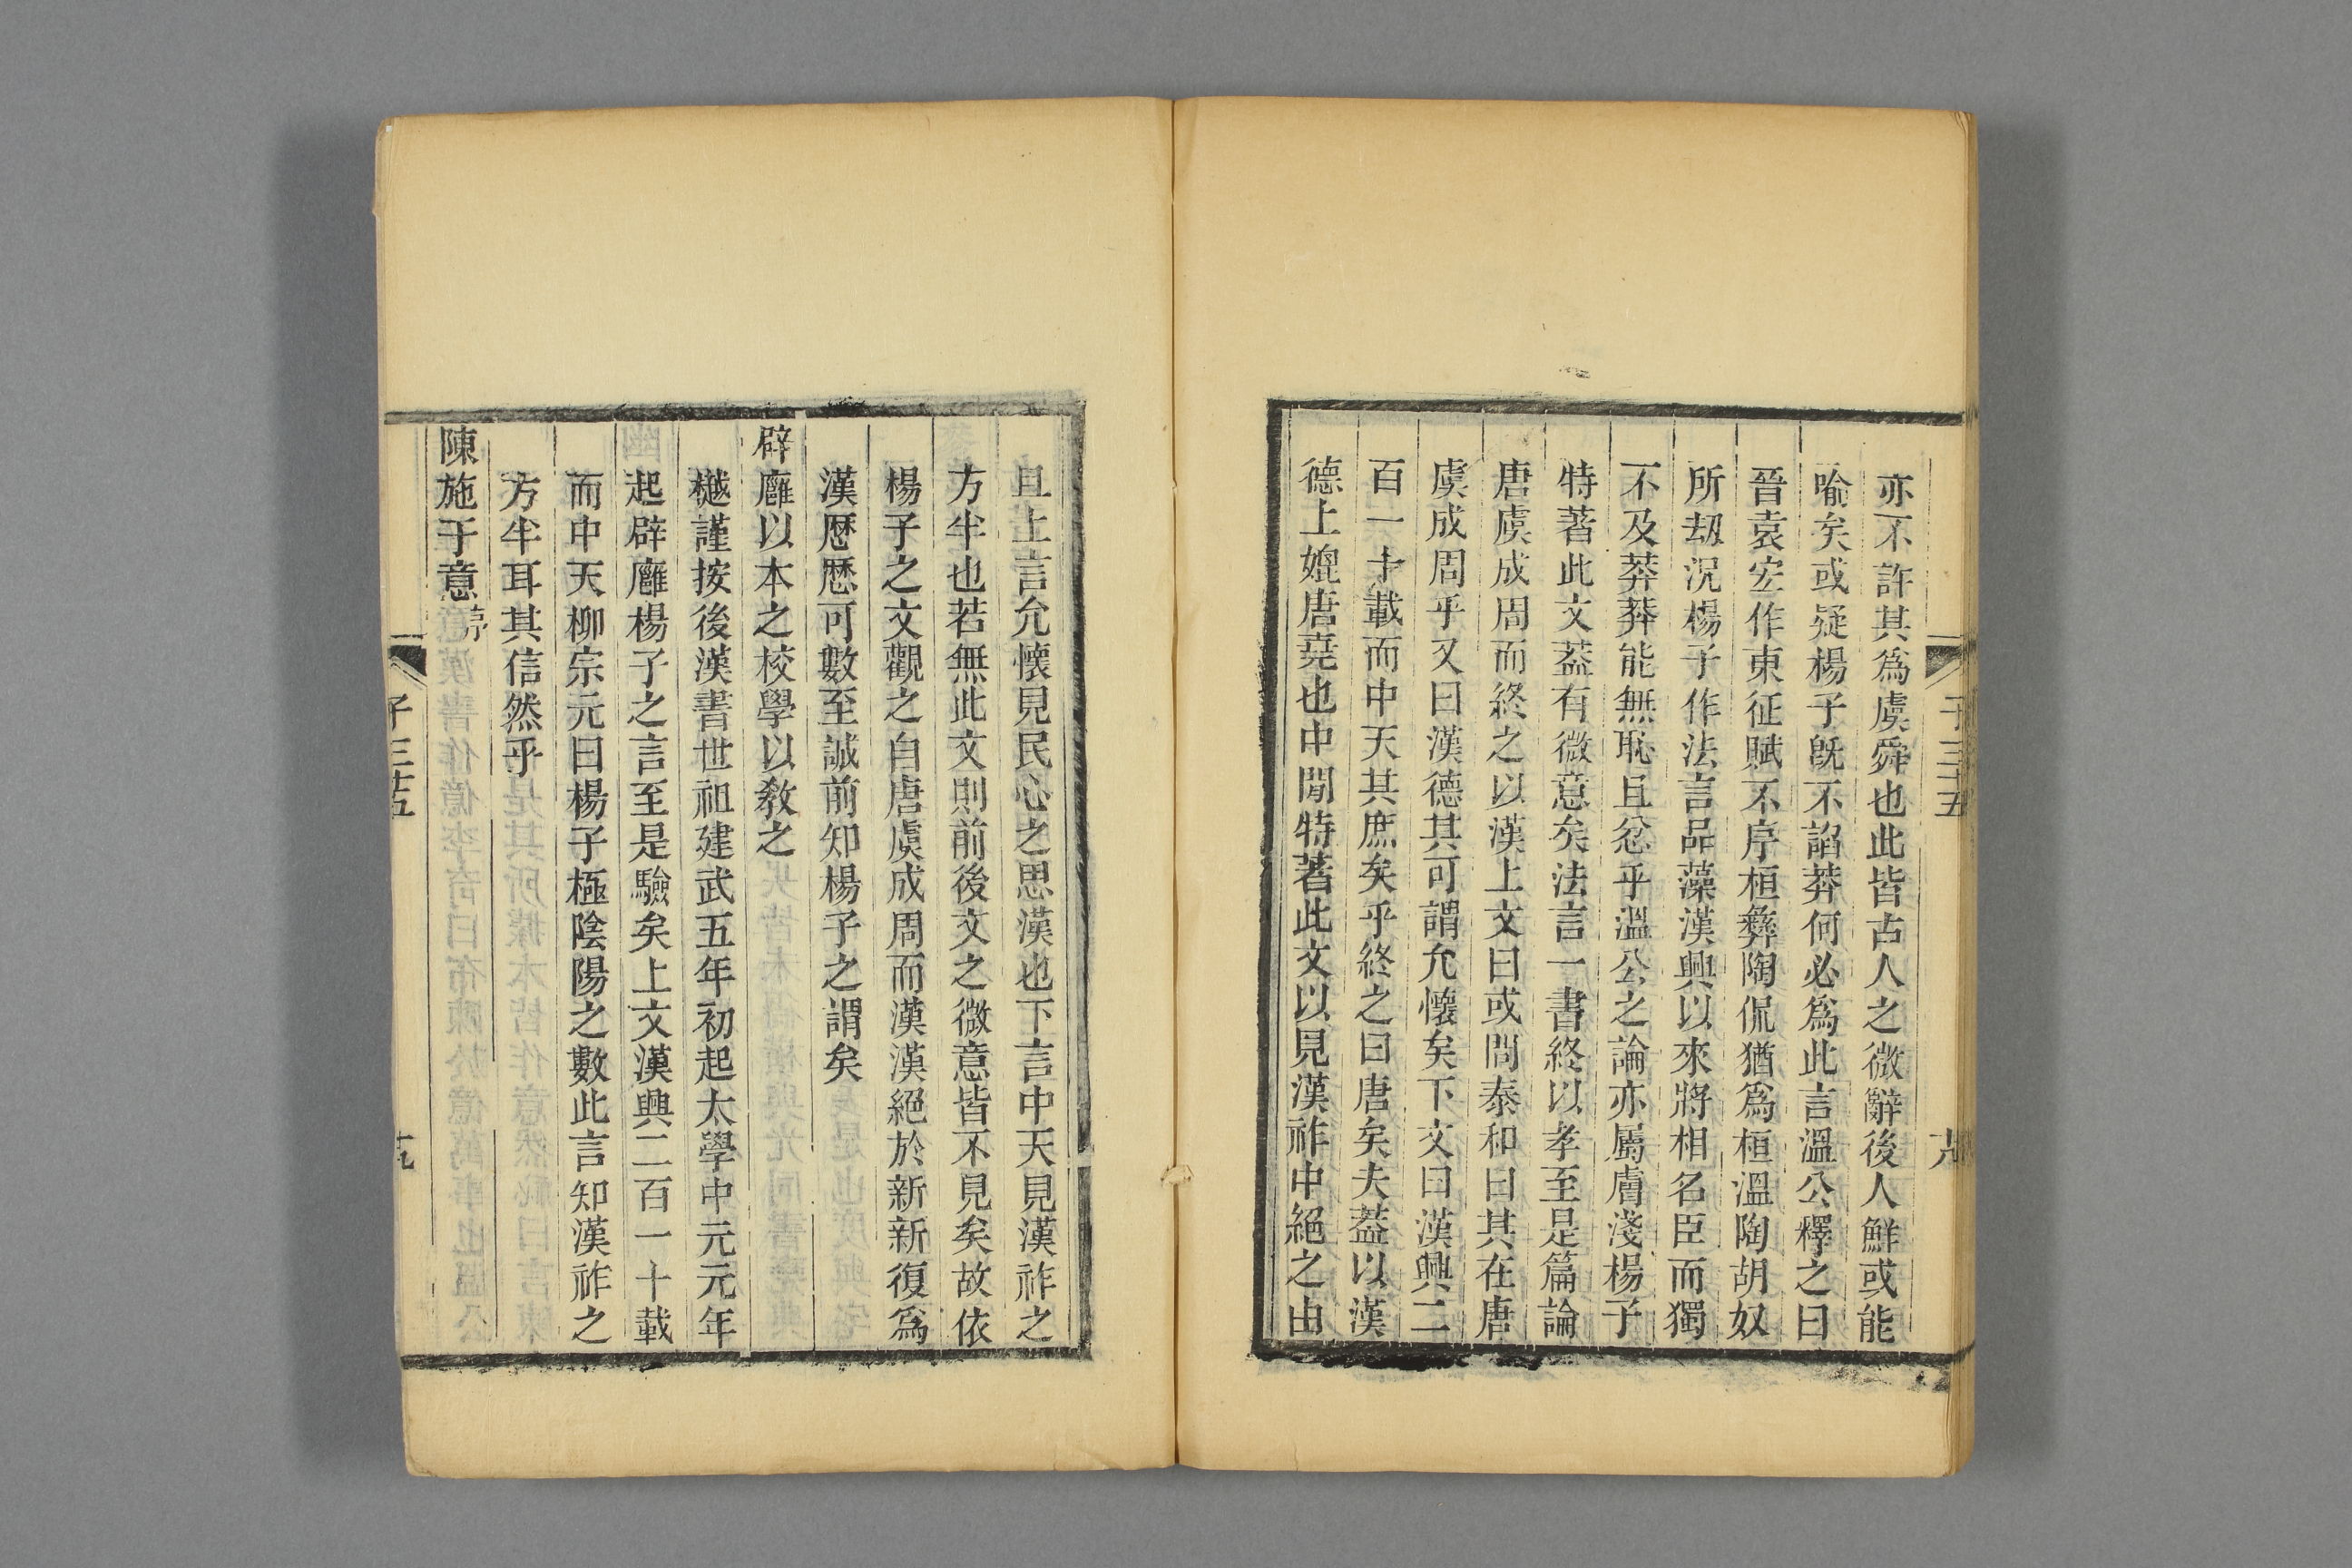 子三十五
十八
亦不許其爲虞舜也此皆古人之微辭後人鮮或能
喻矣或疑楊子旣不諂莽何必爲此言溫公釋之曰
晉袁宏作東征賦不序桓彝陶侃猶爲桓溫陶胡奴
所刼況楊子作法言品藻漢興以來將相名臣而獨
不及莽莽能無恥且忿乎溫公之論亦屬膚淺楊子
特著此文葢有微意矣法言一書終以孝至是篇論
唐虞成周而終之以漢上文曰或問泰和曰其在唐
虞成周乎又曰漢德其可謂允懷矣下文曰漢興二
百一十載而中天其庶矣乎終之曰唐矣夫葢以漢
德上媲唐堯也中閒特著此文以見漢祚中絕之由
且上言允懷見民心之思漢也下言中天見漢祚之
方半也若無此文則前後文之微意皆不見矣故依
楊子之文觀之自唐虞成周而漢漢絕於新新復爲
漢歷歷可數至誠前知楊子之謂矣
辟廱以本之校學以敎之
樾謹按後漢書世祖建武五年初起太學中元元年
起辟廱楊子之言至是驗矣上文漢興二百一十載
而中天柳宗元曰楊子極陰陽之數此言知漢祚之
方半耳其信然乎
陳施于意序
子三十五
十九